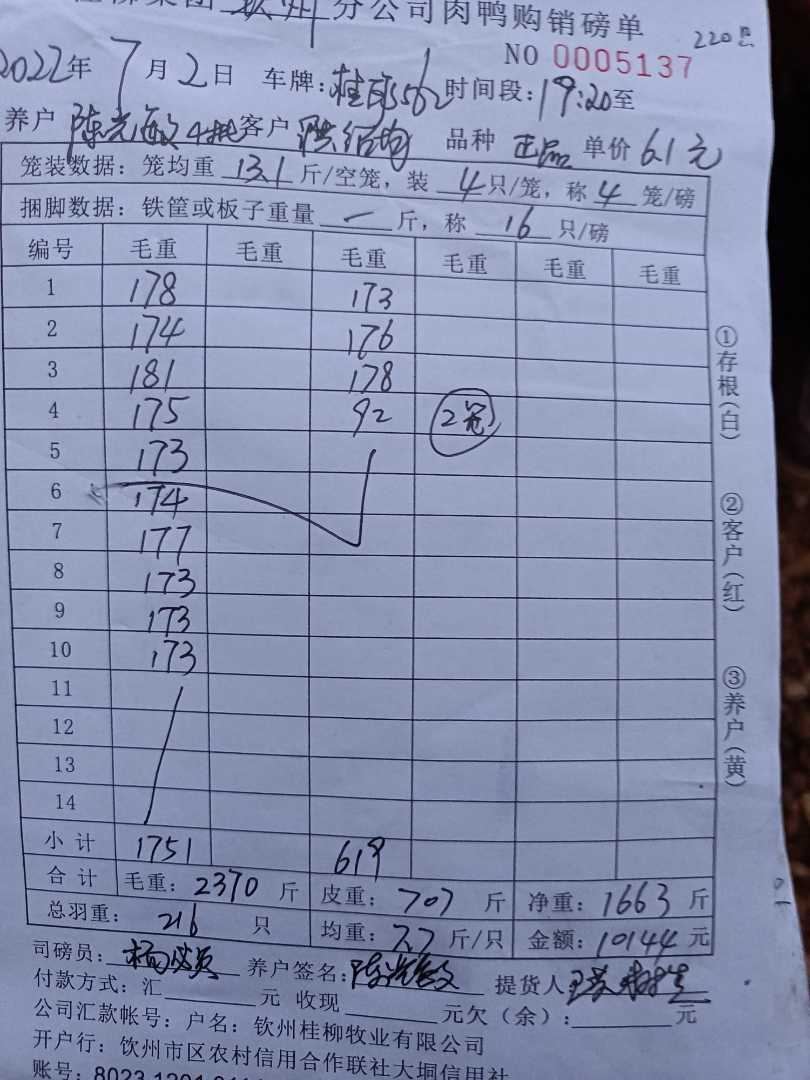 分公司肉鸭购销磅单 220只
NO 0005137
2022年7月2日 车牌: 时间段:19:20至
养户 客户 品种 正品 单价 6.1元
笼装数据:笼均重 13.1 斤/空笼,装 4 只/笼,称 4 笼/磅
捆脚数据:铁筐或板子重量 一 斤,称 16 只/磅
编号 毛重 毛重 毛重 毛重 毛重 毛重
1 178 173
2 174 176
3 181 178
4 175 92 2笼
5 173
6 174
7 177
8 173
9 173
10 173
11
12
13
14
小计 1751 619
合计 毛重:2370 斤 皮重:707 斤 净重:1663 斤
总羽重: 216 只 均重:7.7 斤/只 金额:10144 元
司磅员: 养户签名: 提货人
付款方式:汇 元 收现 元欠(余): 元
公司汇款帐号:户名:钦州桂柳牧业有限公司
开户行:钦州市区农村信用合作联社大垌信用社
账号:8023
①存根(白)
②客户(红)
③养户(黄)